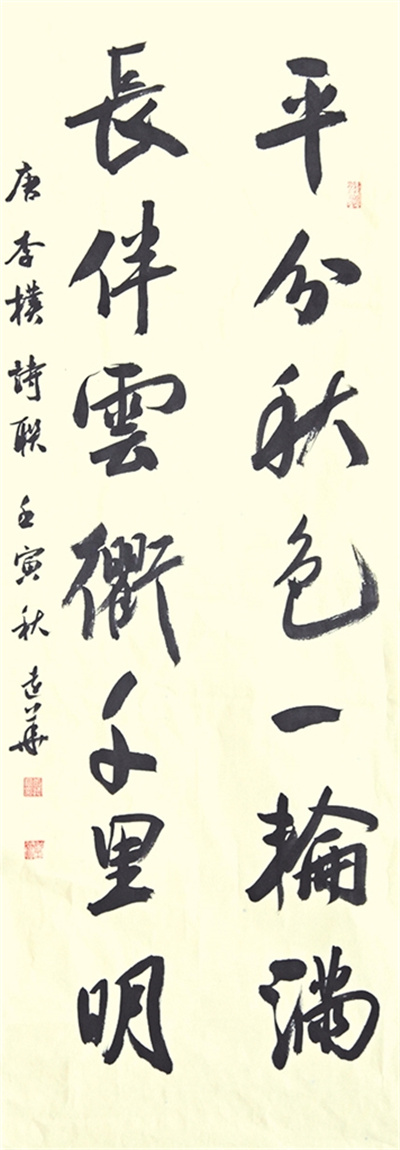 平分秋色一輪滿
長伴雲衢千里明
唐李樸詩聯 壬寅秋 志華